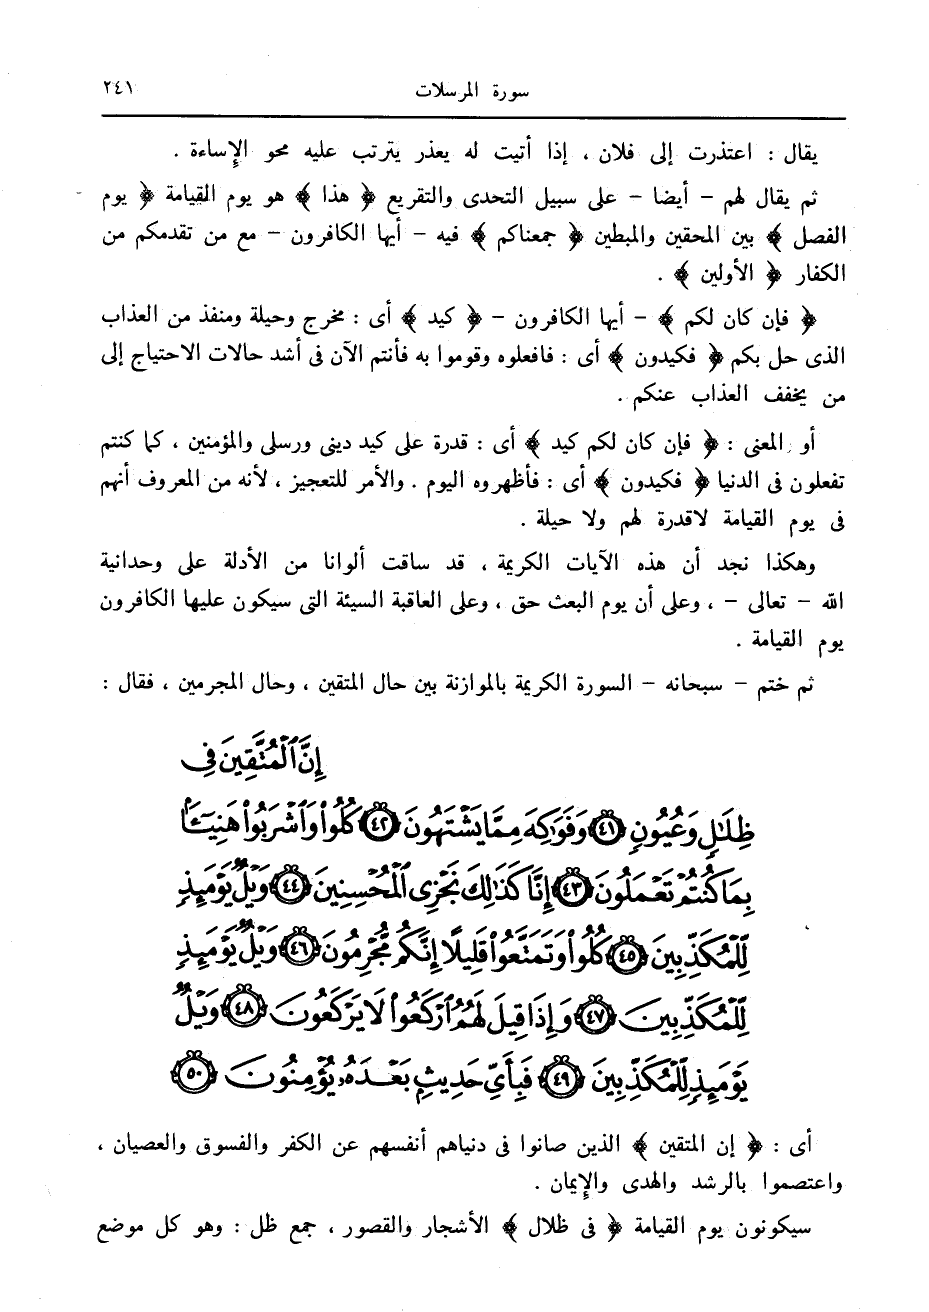 سورة المرسلات ٢٤١
يقال : اعتذرت إلى فلان ، إذا أتيت له يعذر يترتب عليه محو الإساءة .
ثم يقال لهم – أيضا – على سبيل التحدى والتقريع ﴿ هذا ﴾ هو يوم القيامة ﴿ يوم
الفصل ﴾ بين المحقين والمبطين ﴿ جمعناكم ﴾ فيه – أيها الكافرون – مع من تقدمكم من
الكفار ﴿ الأولين ﴾ .
﴿ فإن كان لكم ﴾ – أيها الكافرون – ﴿ كيد ﴾ أى : مخرج وحيلة ومنفذ من العذاب
الذى حل بكم ﴿ فكيدون ﴾ أى : فافعلوه وقوموا به فأنتم الآن فى أشد حالات الاحتياج إلى
من يخفف العذاب عنكم .
أو المعنى : ﴿ فإن كان لكم كيد ﴾ أى : قدرة على كيد دينى ورسلى والمؤمنين ، كما كنتم
تفعلون فى الدنيا ﴿ فكيدون ﴾ أى : فأظهروه اليوم . والأمر للتعجيز ، لأنه من المعروف أنهم
فى يوم القيامة لاقدرة لهم ولا حيلة .
وهكذا نجد أن هذه الآيات الكريمة ، قد ساقت ألوانا من الأدلة على وحدانية
الله – تعالى – ، وعلى أن يوم البعث حق ، وعلى العاقبة السيئة التى سيكون عليها الكافرون
يوم القيامة .
ثم ختم – سبحانه – السورة الكريمة بالموازنة بين حال المتقين ، وحال المجرمين ، فقال :
إِنَّ ٱلْمُتَّقِينَ فِى
ظِلَٰلٍ وَعُيُونٍ ٤١ وَفَوَٰكِهَ مِمَّا يَشْتَهُونَ ٤٢ كُلُوا۟ وَٱشْرَبُوا۟ هَنِيٓـًٔۢا
بِمَا كُنتُمْ تَعْمَلُونَ ٤٣ إِنَّا كَذَٰلِكَ نَجْزِى ٱلْمُحْسِنِينَ ٤٤ وَيْلٌ يَوْمَئِذٍ
لِّلْمُكَذِّبِينَ ٤٥ كُلُوا۟ وَتَمَتَّعُوا۟ قَلِيلًا إِنَّكُم مُّجْرِمُونَ ٤٦ وَيْلٌ يَوْمَئِذٍ
لِّلْمُكَذِّبِينَ ٤٧ وَإِذَا قِيلَ لَهُمُ ٱرْكَعُوا۟ لَا يَرْكَعُونَ ٤٨ وَيْلٌ
يَوْمَئِذٍ لِّلْمُكَذِّبِينَ ٤٩ فَبِأَىِّ حَدِيثٍۭ بَعْدَهُۥ يُؤْمِنُونَ ٥٠
أى : ﴿ إن المتقين ﴾ الذين صانوا فى دنياهم أنفسهم عن الكفر والفسوق والعصيان ،
واعتصموا بالرشد والهدى والإيمان .
سيكونون يوم القيامة ﴿ فى ظلال ﴾ الأشجار والقصور ، جمع ظل : وهو كل موضع